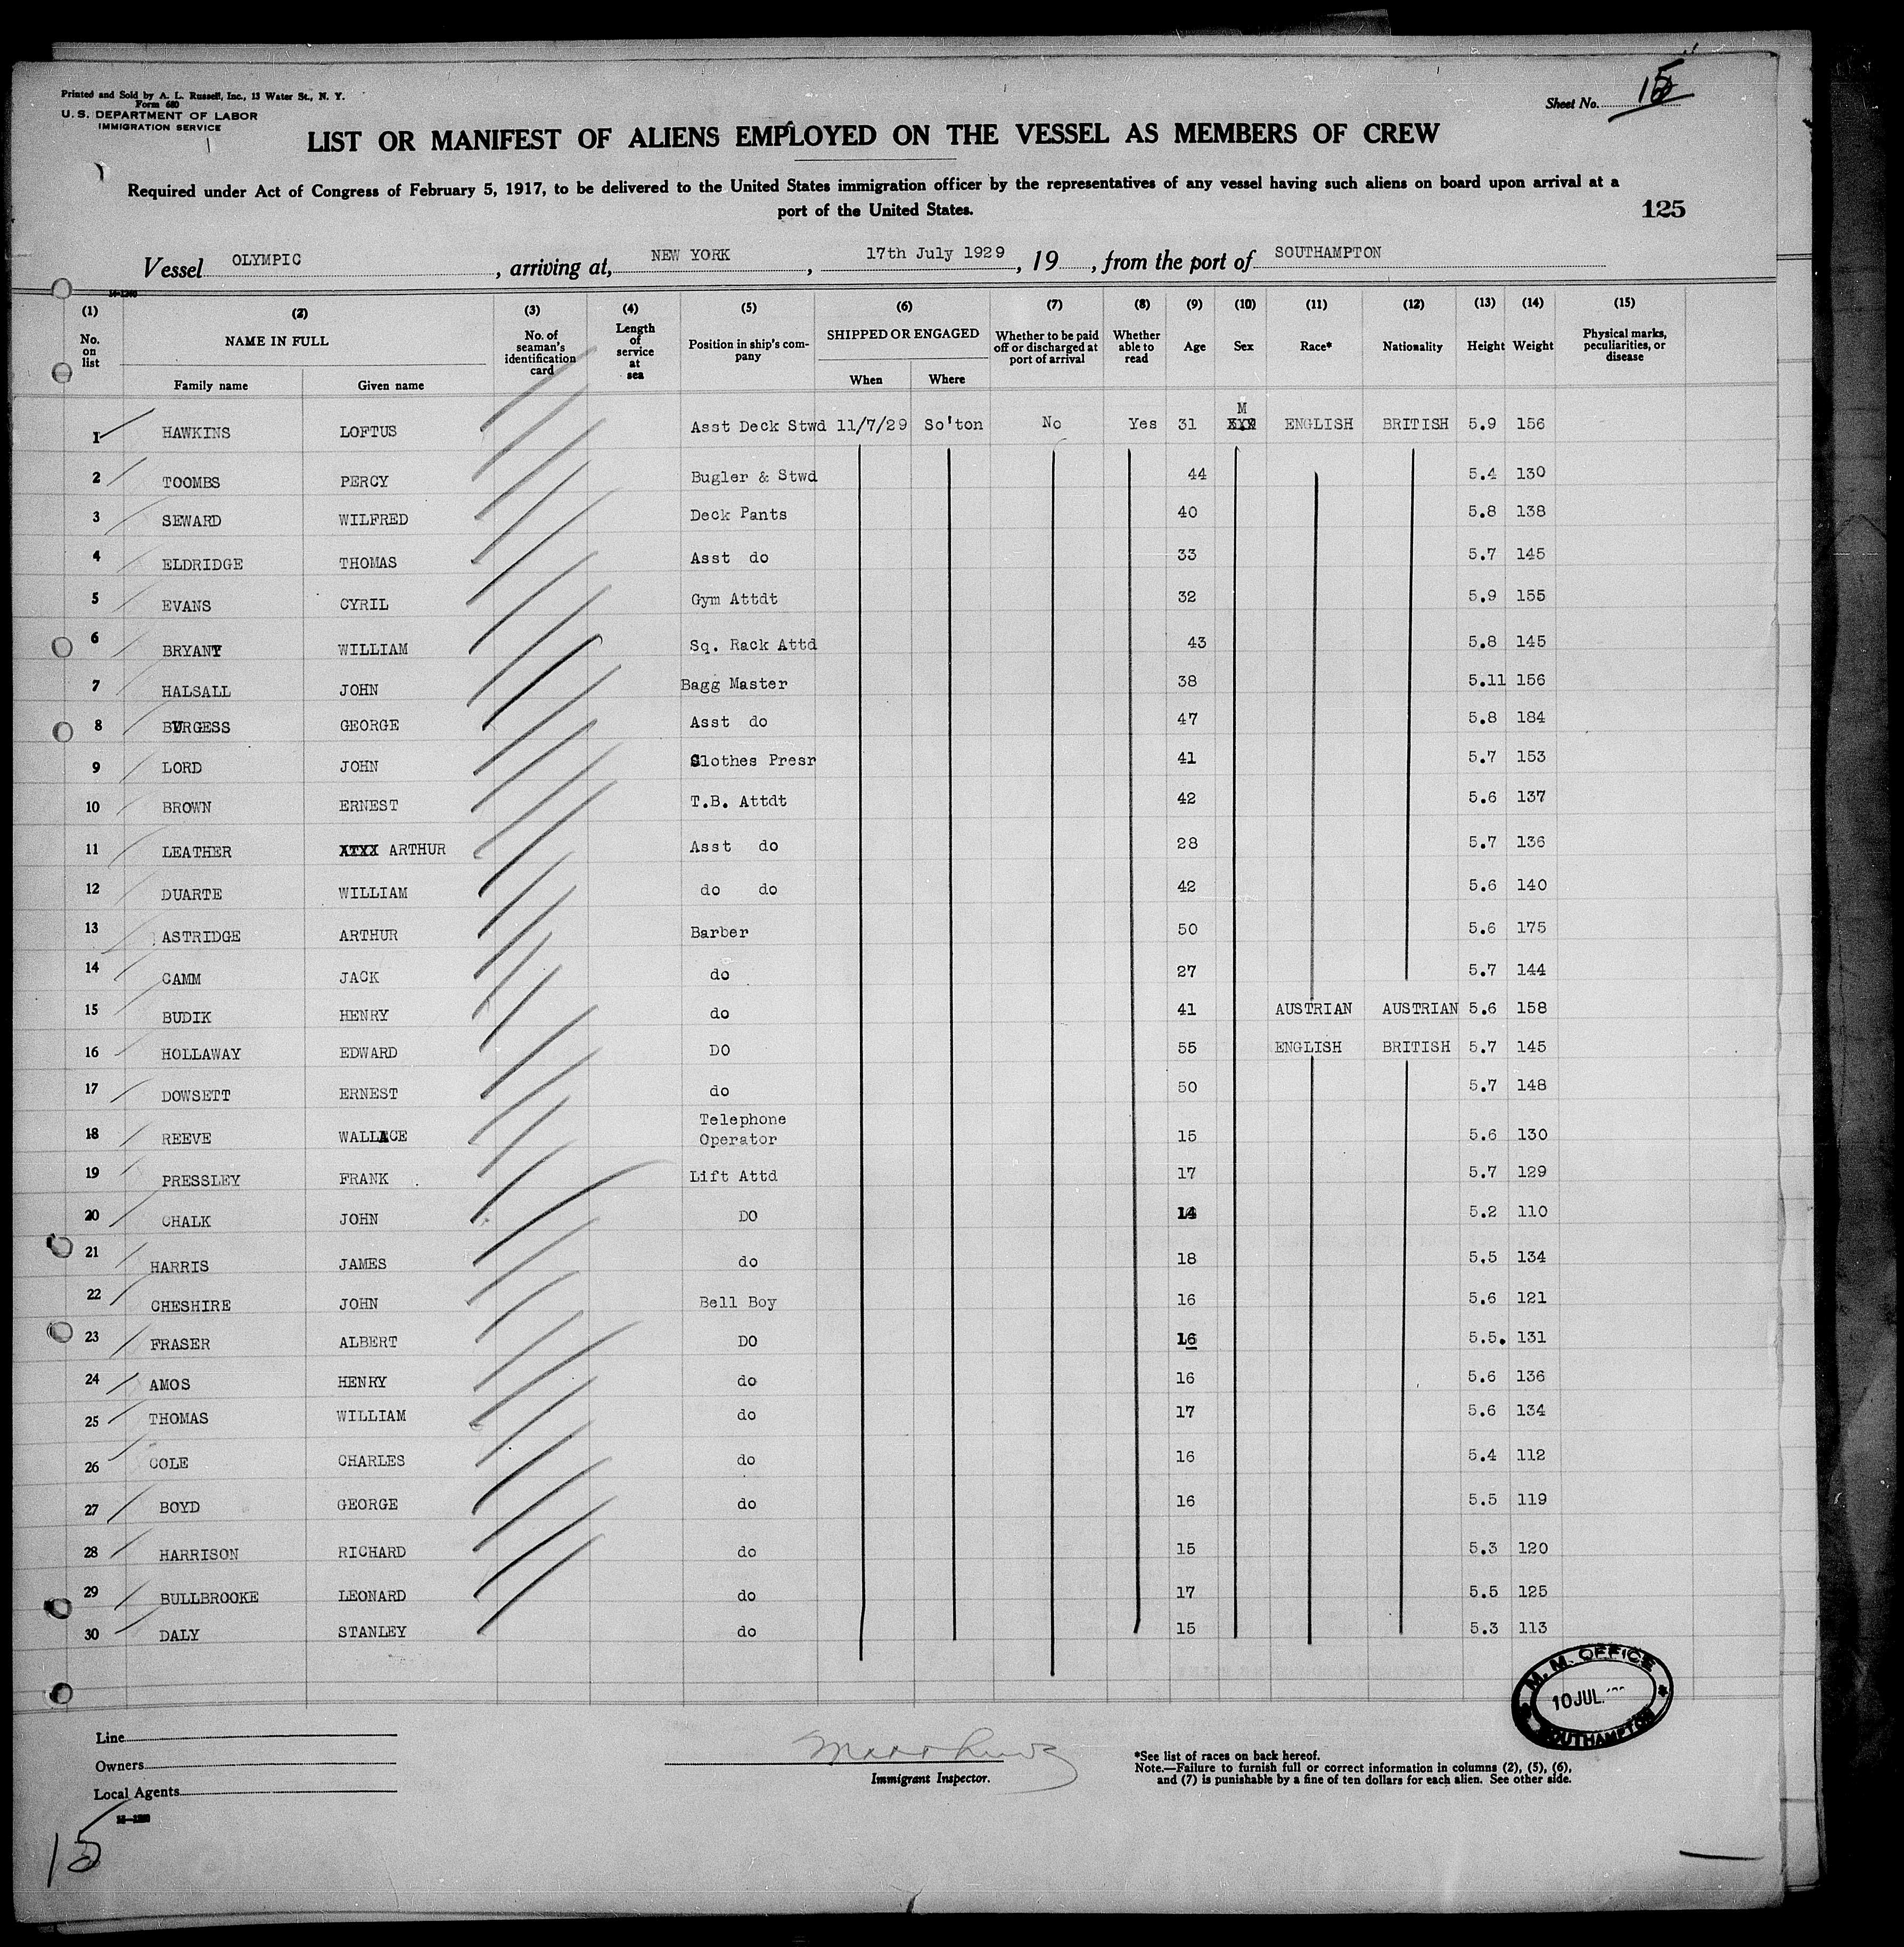 Printed and Sold by A. L. Russell, Inc., 13 Water St., N. Y.
Form 680
U. S. DEPARTMENT OF LABOR
IMMIGRATION SERVICE
Sheet No. 15
LIST OR MANIFEST OF ALIENS EMPLOYED ON THE VESSEL AS MEMBERS OF CREW
Required under Act of Congress of February 5, 1917, to be delivered to the United States immigration officer by the representatives of any vessel having such aliens on board upon arrival at a
port of the United States.
125
Vessel OLYMPIC, arriving at, NEW YORK, 17th July 1929, 19, from the port of SOUTHAMPTON
(1) (2) (3) (4) (5) (6) (7) (8) (9) (10) (11) (12) (13) (14) (15)
No. on list NAME IN FULL No. of seaman's identification card Length of service at sea Position in ship's company SHIPPED OR ENGAGED Whether to be paid off or discharged at port of arrival Whether able to read Age Sex Race* Nationality Height Weight Physical marks, peculiarities, or disease
Family name Given name When Where
1 HAWKINS LOFTUS Asst Deck Stwd 11/7/29 So'ton No Yes 31 M ENGLISH BRITISH 5.9 156
2 TOOMBS PERCY Bugler & Stwd 44 5.4 130
3 SEWARD WILFRED Deck Pants 40 5.8 138
4 ELDRIDGE THOMAS Asst do 33 5.7 145
5 EVANS CYRIL Gym Attdt 32 5.9 155
6 BRYANT WILLIAM Sq. Rack Attd 43 5.8 145
7 HALSALL JOHN Bagg Master 38 5.11 156
8 BURGESS GEORGE Asst do 47 5.8 184
9 LORD JOHN Clothes Presr 41 5.7 153
10 BROWN ERNEST T.B. Attdt 42 5.6 137
11 LEATHER ARTHUR Asst do 28 5.7 136
12 DUARTE WILLIAM do do 42 5.6 140
13 ASTRIDGE ARTHUR Barber 50 5.6 175
14 CAMM JACK do 27 5.7 144
15 BUDIK HENRY do 41 AUSTRIAN AUSTRIAN 5.6 158
16 HOLLAWAY EDWARD DO 55 ENGLISH BRITISH 5.7 145
17 DOWSETT ERNEST do 50 5.7 148
18 REEVE WALLACE Telephone Operator 15 5.6 130
19 PRESSLEY FRANK Lift Attd 17 5.7 129
20 CHALK JOHN DO 14 5.2 110
21 HARRIS JAMES do 18 5.5 134
22 CHESHIRE JOHN Bell Boy 16 5.6 121
23 FRASER ALBERT DO 16 5.5. 131
24 AMOS HENRY do 16 5.6 136
25 THOMAS WILLIAM do 17 5.6 134
26 COLE CHARLES do 16 5.4 112
27 BOYD GEORGE do 16 5.5 119
28 HARRISON RICHARD do 15 5.3 120
29 BULLBROOKE LEONARD do 17 5.5 125
30 DALY STANLEY do 15 5.3 113
M. M. OFFICE
10 JUL.
SOUTHAMPTON
Line
Owners
Local Agents
Immigrant Inspector.
*See list of races on back hereof.
Note.—Failure to furnish full or correct information in columns (2), (5), (6),
and (7) is punishable by a fine of ten dollars for each alien. See other side.
15